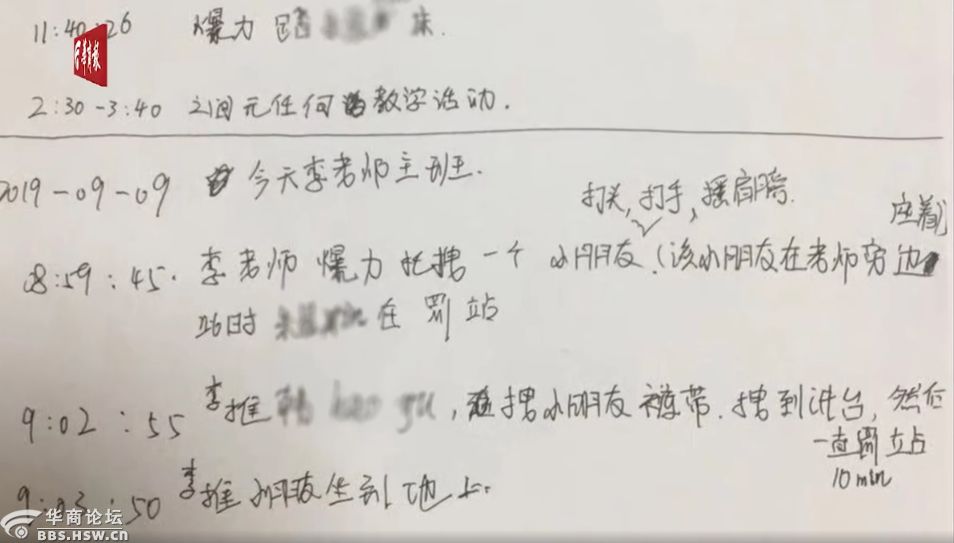 11:40:26 爆力 床.
华商报
2:30-3:40 之间元任何教学活动.
2019-09-09 今天李老师主班.
打头, 打手, 摇肩膀.
应戴
8:59:45. 李老师 爆力 拖拽 一个 小朋友 (该小朋友在老师旁边
此时 在 罚 站
9:02:55 李推 hao yu, 拽小朋友 裤带. 拽到讲台, 然后
一直罚站
10 min
9:03:50 李推 小朋友坐到 地上.
华商论坛
BBS.HSW.CN